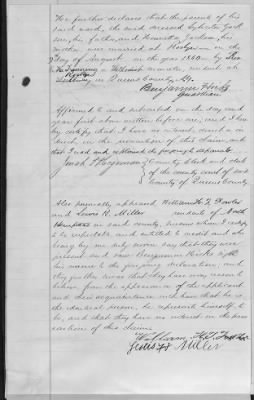 He further declares that the parents of his
said ward, the said deceased Sylvester Jack
son, his father, and Henrietta Jackson, his
mother was married at Roslyn on the
day of August in the year 1860 by
a Methodist minister resident at
in Queens County N.Y.
Benjamin Hicks
Guardian
Affirmed to and subscribed on the day and
year first above written before me, and I here
by certify that I have no interest, direct or in
direct, in the prosecution of this claim and
that I read and explained the foregoing to
County Clerk and clerk
of the county court of said
County of Queens County
Also personally appeared William H. T.
and Lewis H. Miller residents of North
Hempstead in said county, persons whom I certify
to be reputable and entitled to credit and who
being by me duly sworn say that they were
present and saw Benjamin Hicks sign
his name to the foregoing declaration; and
they further swear that they have every reason to
believe, from the appearance of the applicant
and their acquaintance with him that he is
the identical person he represents himself to
be, and that they have no interest in the pros
ecution of this claim.
William H. T.
Lewis H Miller